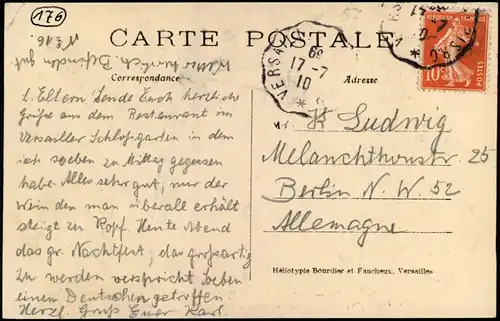 176
CARTE POSTALE
Correspondance
Adresse
L. Eltern! Sende Euch herzliche
Grüße aus dem Restaurant im
Versailler Schloßgarten in dem
ich soeben zu Mittag gegessen
habe. Alles sehr gut, nur der
Wein den man überall erhält
steigt zu Kopf. Heute Abend
das gr. Nachtfest, das großartig
zu werden verspricht. Soeben
einen Deutschen getroffen.
Herzl. Gruß Euer Karl.
VERSA
17-7
10
REPUBLIQUE FRANÇAISE
10
POSTES
Ludwig
Melanchthonstr 25
Berlin N. W. 52
Allemagne
Héliotypie Bourdier et Faucheux, Versailles